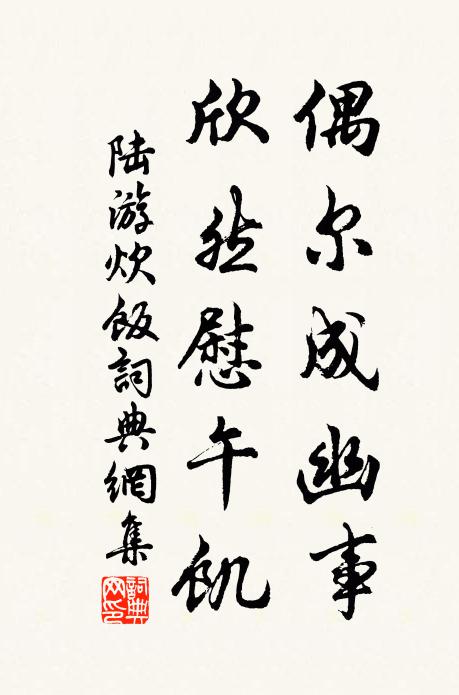 偶尔成幽事
欣然慰午飢
陆游炊飯詞典網集
詞典網印